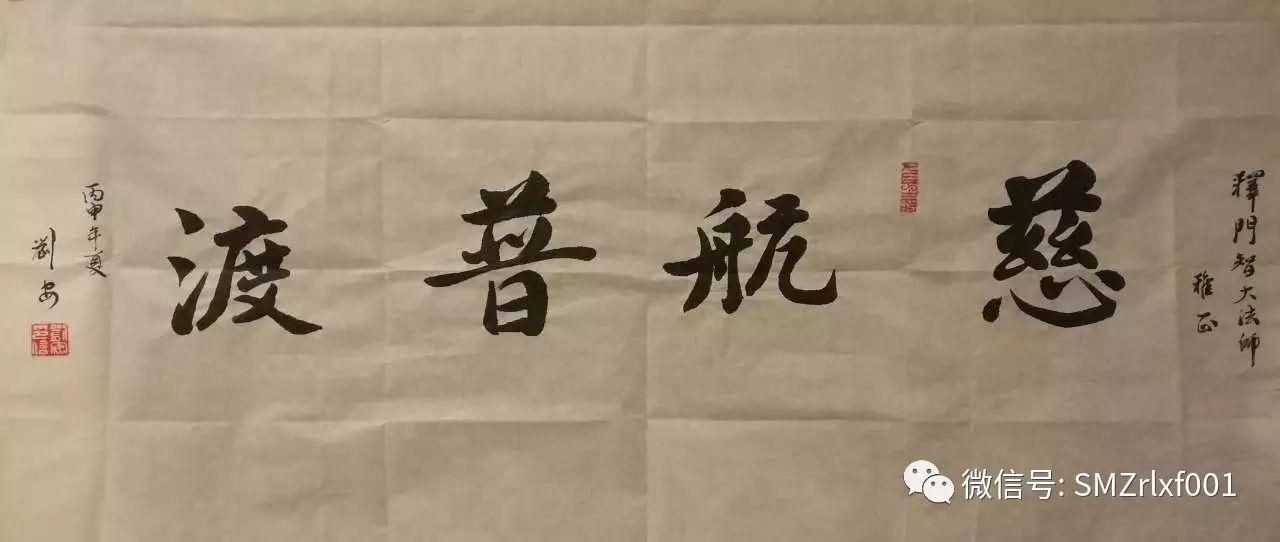 釋門智大法師
雅正
慈航普渡
丙申年夏
劉安
微信号: SMZrlxf001